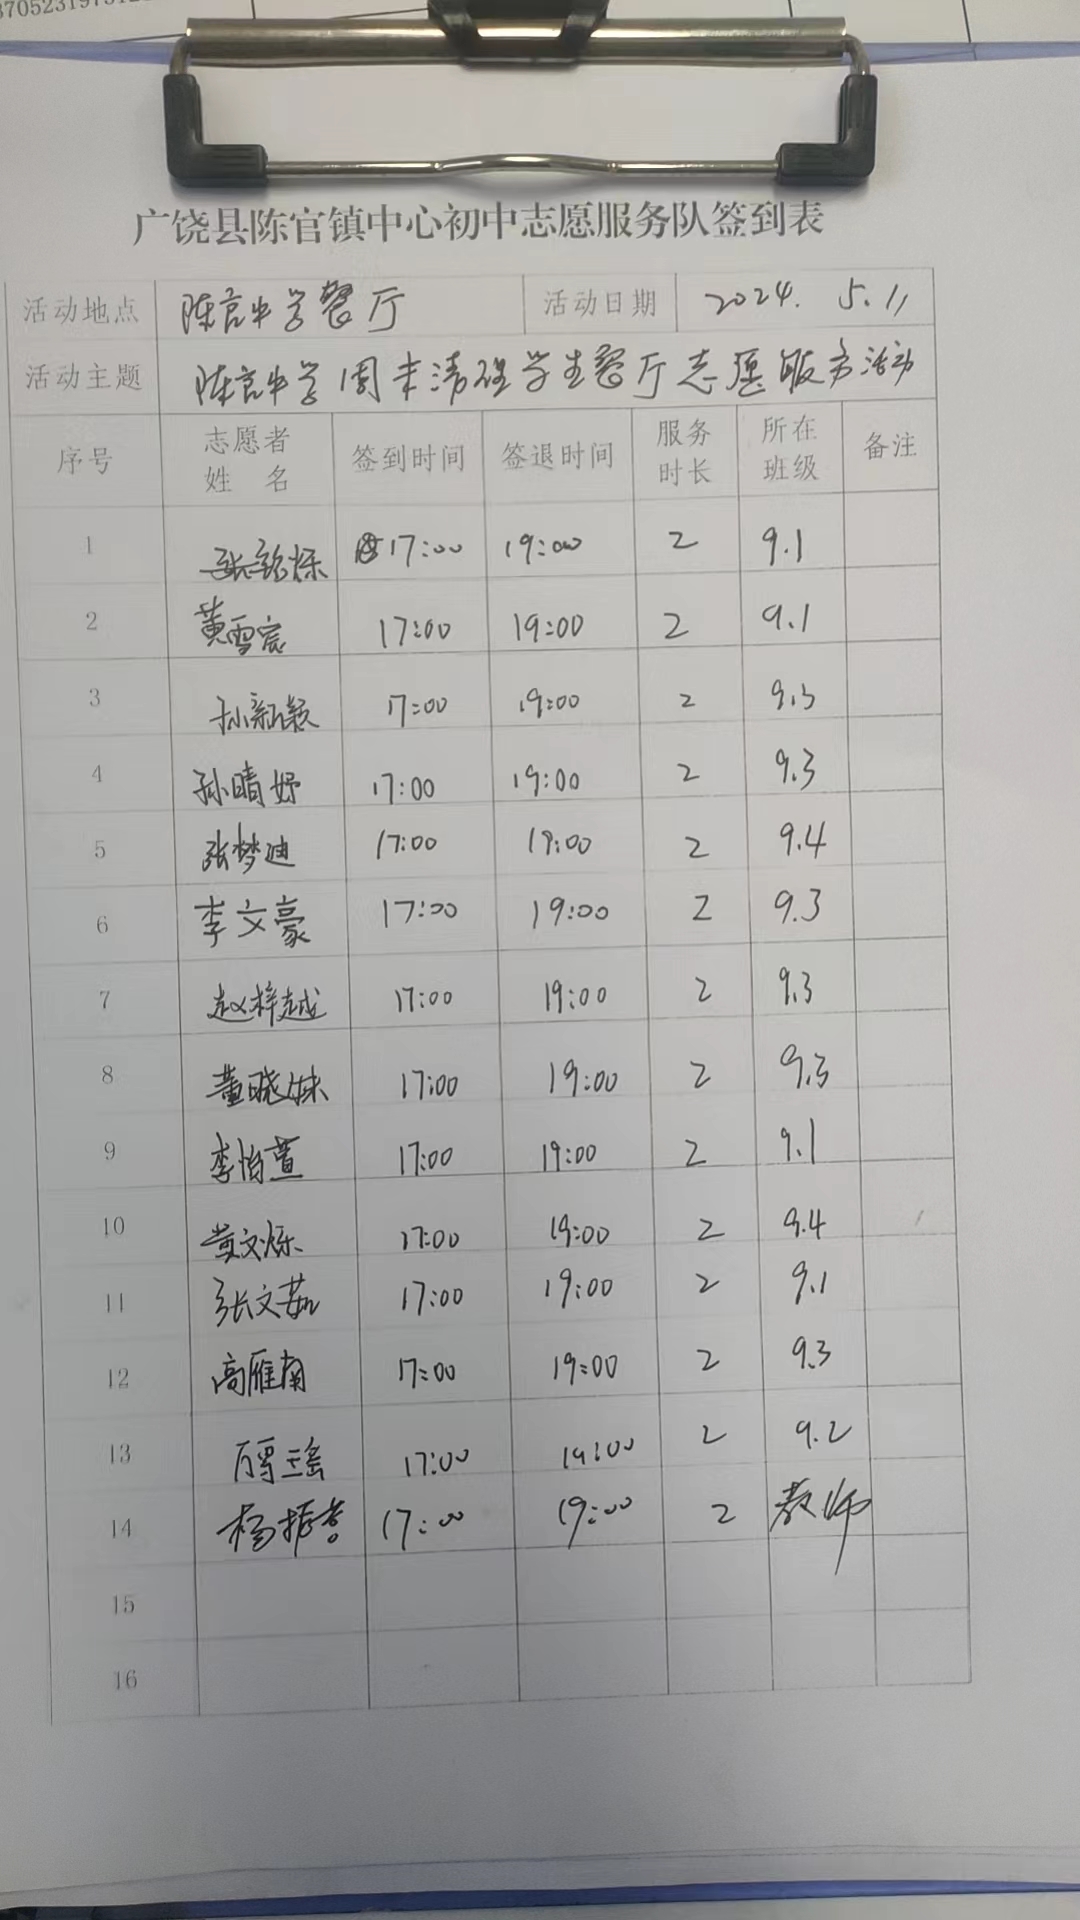 广饶县陈官镇中心初中志愿服务队签到表
活动地点 陈官中学餐厅 活动日期 2024. 5.11
活动主题 陈官中学周末清理学生餐厅志愿服务活动
序号 志愿者姓名 签到时间 签退时间 服务时长 所在班级 备注
1 张铭烁 17:00 19:00 2 9.1
2 黄雪宸 17:00 19:00 2 9.1
3 孙新颖 17:00 19:00 2 9.3
4 孙晴妤 17:00 19:00 2 9.3
5 张梦迪 17:00 19:00 2 9.4
6 李文豪 17:00 19:00 2 9.3
7 赵梓越 17:00 19:00 2 9.3
8 董晓妹 17:00 19:00 2 9.3
9 李怡萱 17:00 19:00 2 9.1
10 黄文烁 17:00 19:00 2 9.4
11 张文茹 17:00 19:00 2 9.1
12 高雁南 17:00 19:00 2 9.3
13 17:00 19:00 2 9.2
14 17:00 19:00 2 教师
15
16